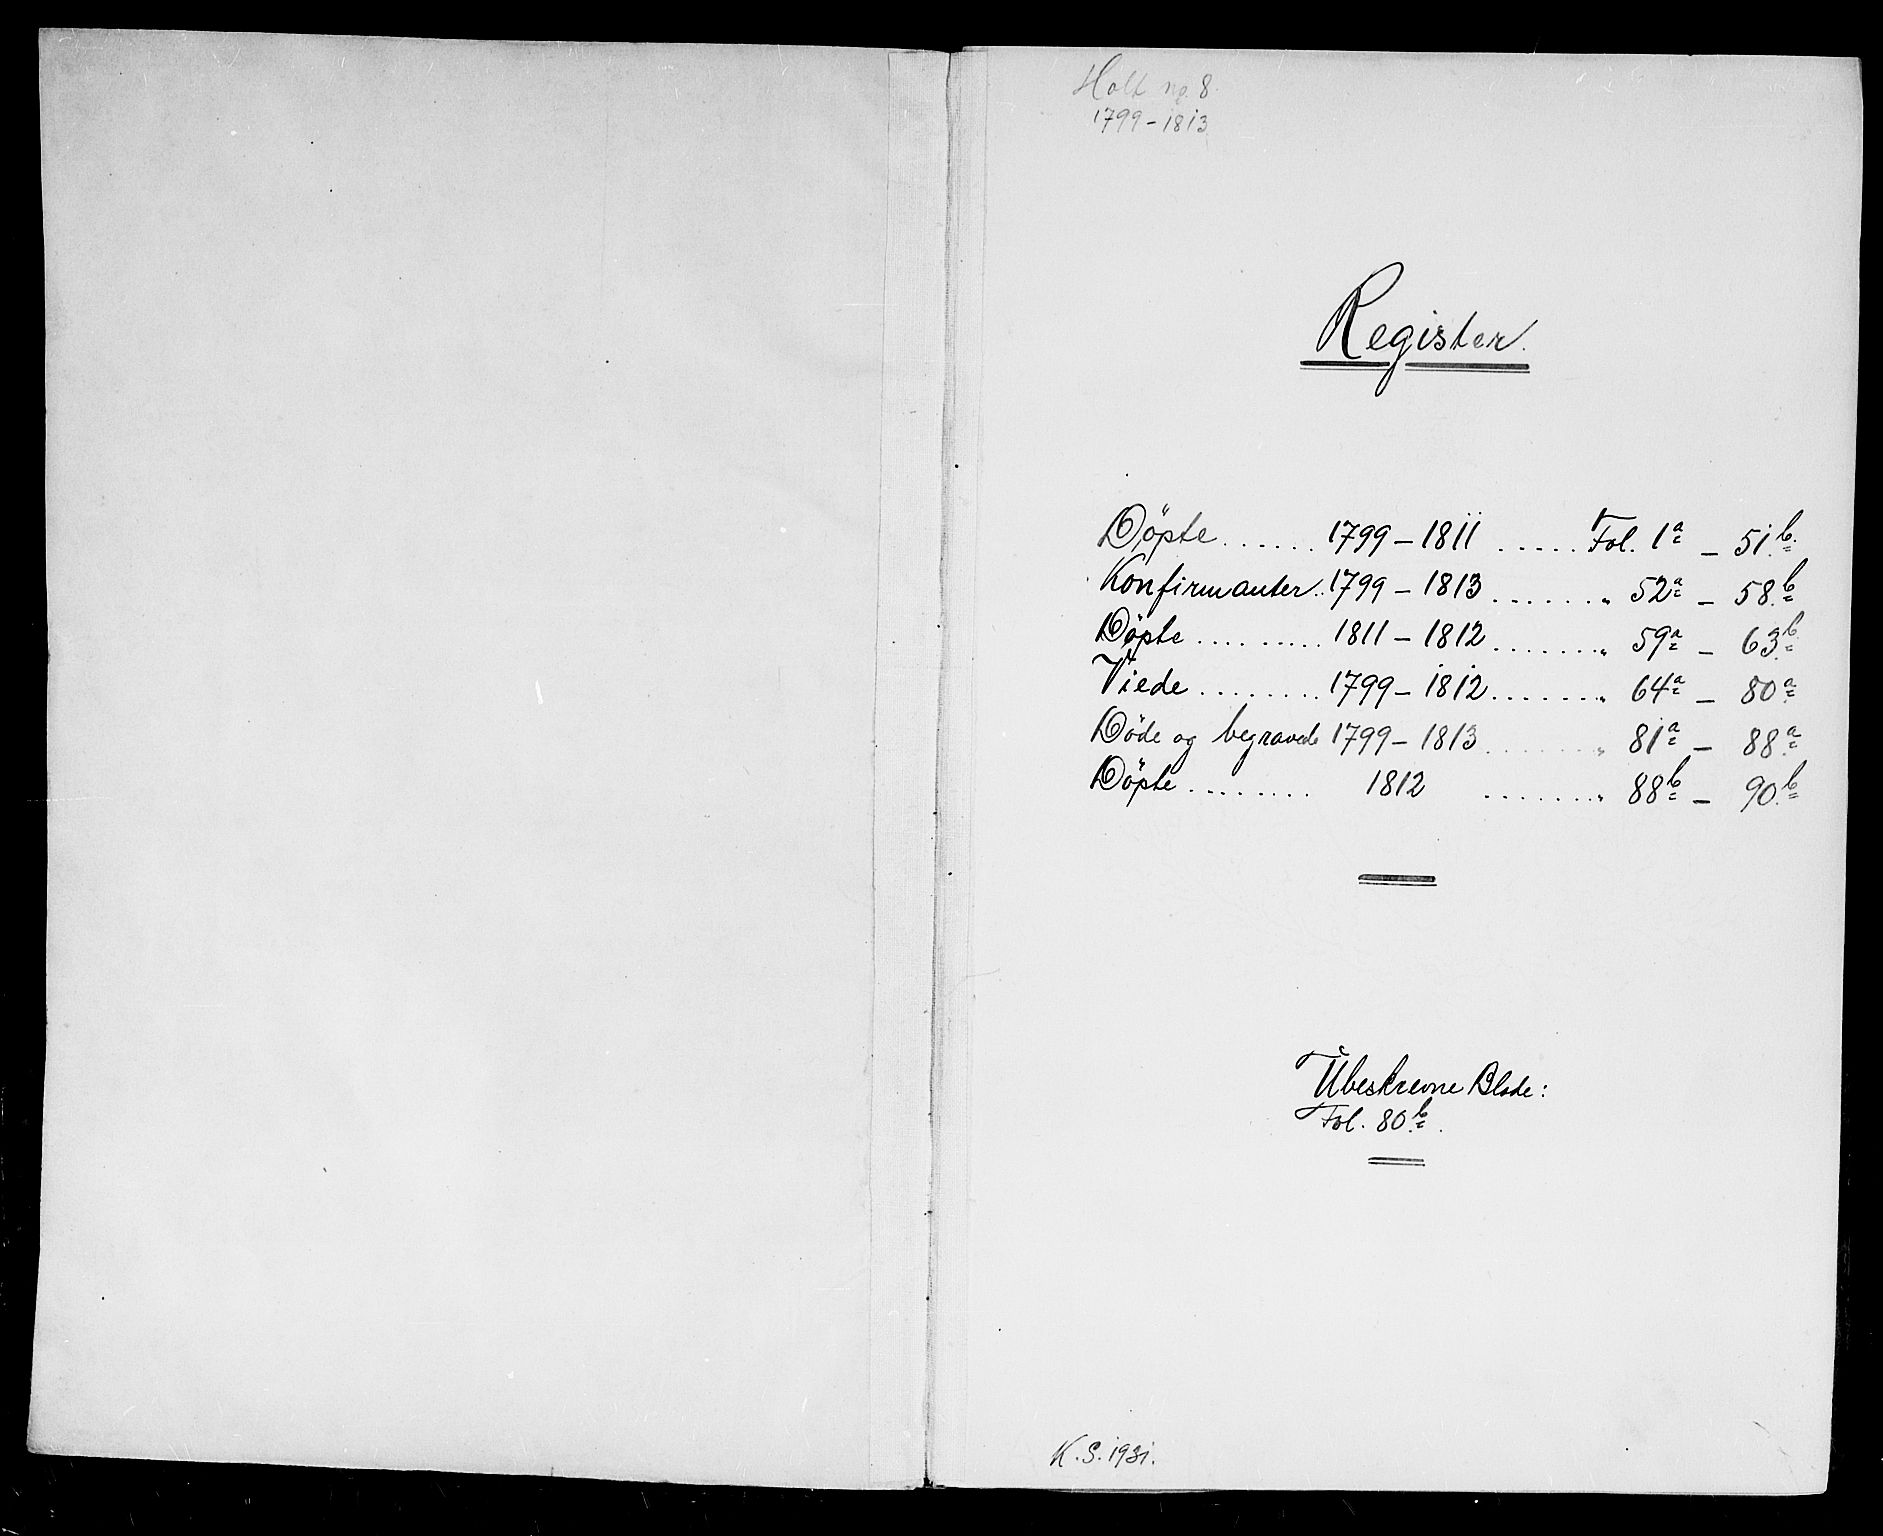 Holt no. 8.
1799 - 1813
Register.
Döpte ...... 1799 - 1811 ..... Fol. 1a - 51b.
Konfirmanter .. 1799 - 1813 ...... " 52a - 58b
Döpte ........ 1811 - 1812 ...... " 59a - 63b
Viede ........ 1799 - 1812 ...... " 64a - 80a
Döde og begravede 1799 - 1813 ...... " 81a - 88a
Döpte ........ 1812 ...... " 88b - 90b
Ubeskrevne Blade:
Fol. 80b.
K. S. 1931.